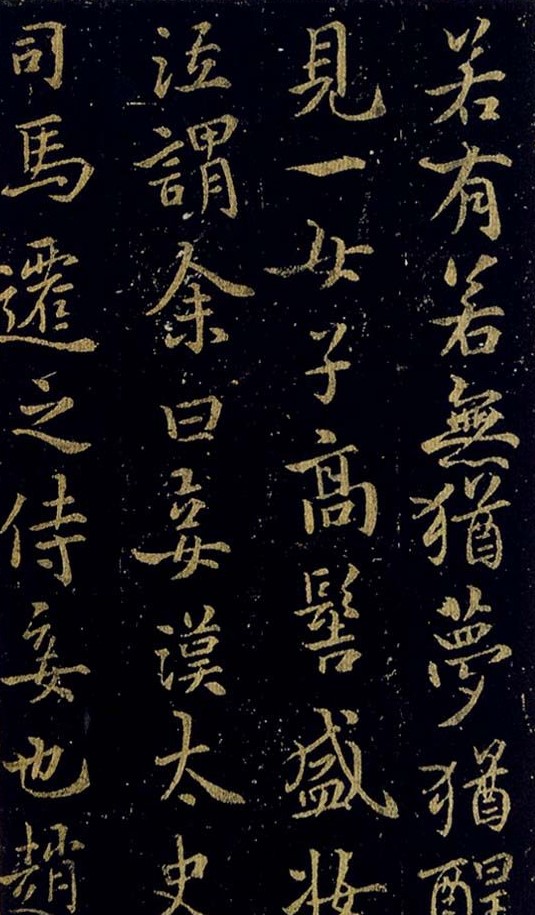 若有若無猶夢猶醒
見一女子髙髻盛妝
泣謂余曰妾漢太史
司馬遷之侍妾也趙